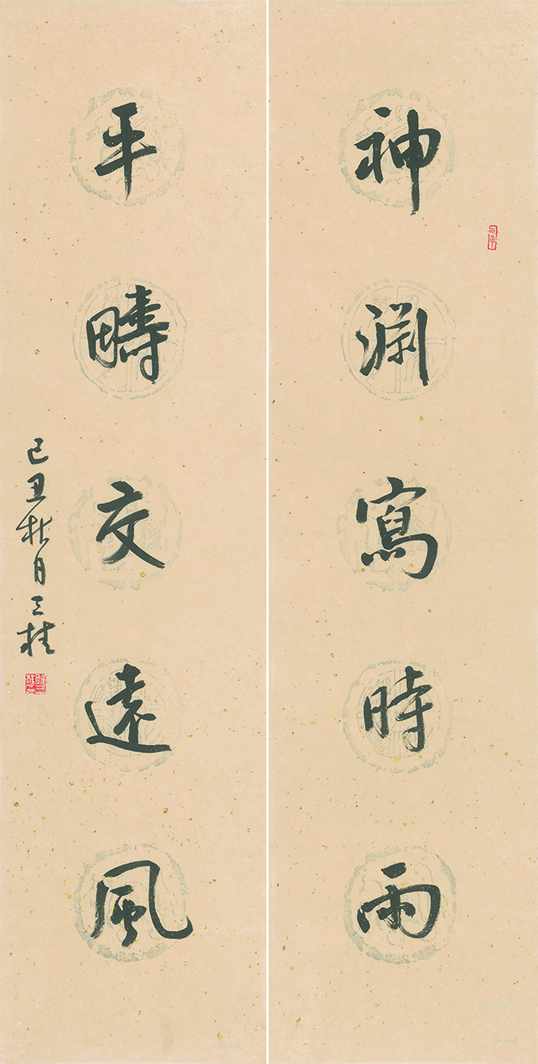 神渊寫時雨
平疇交遠風
己丑秋月三桂